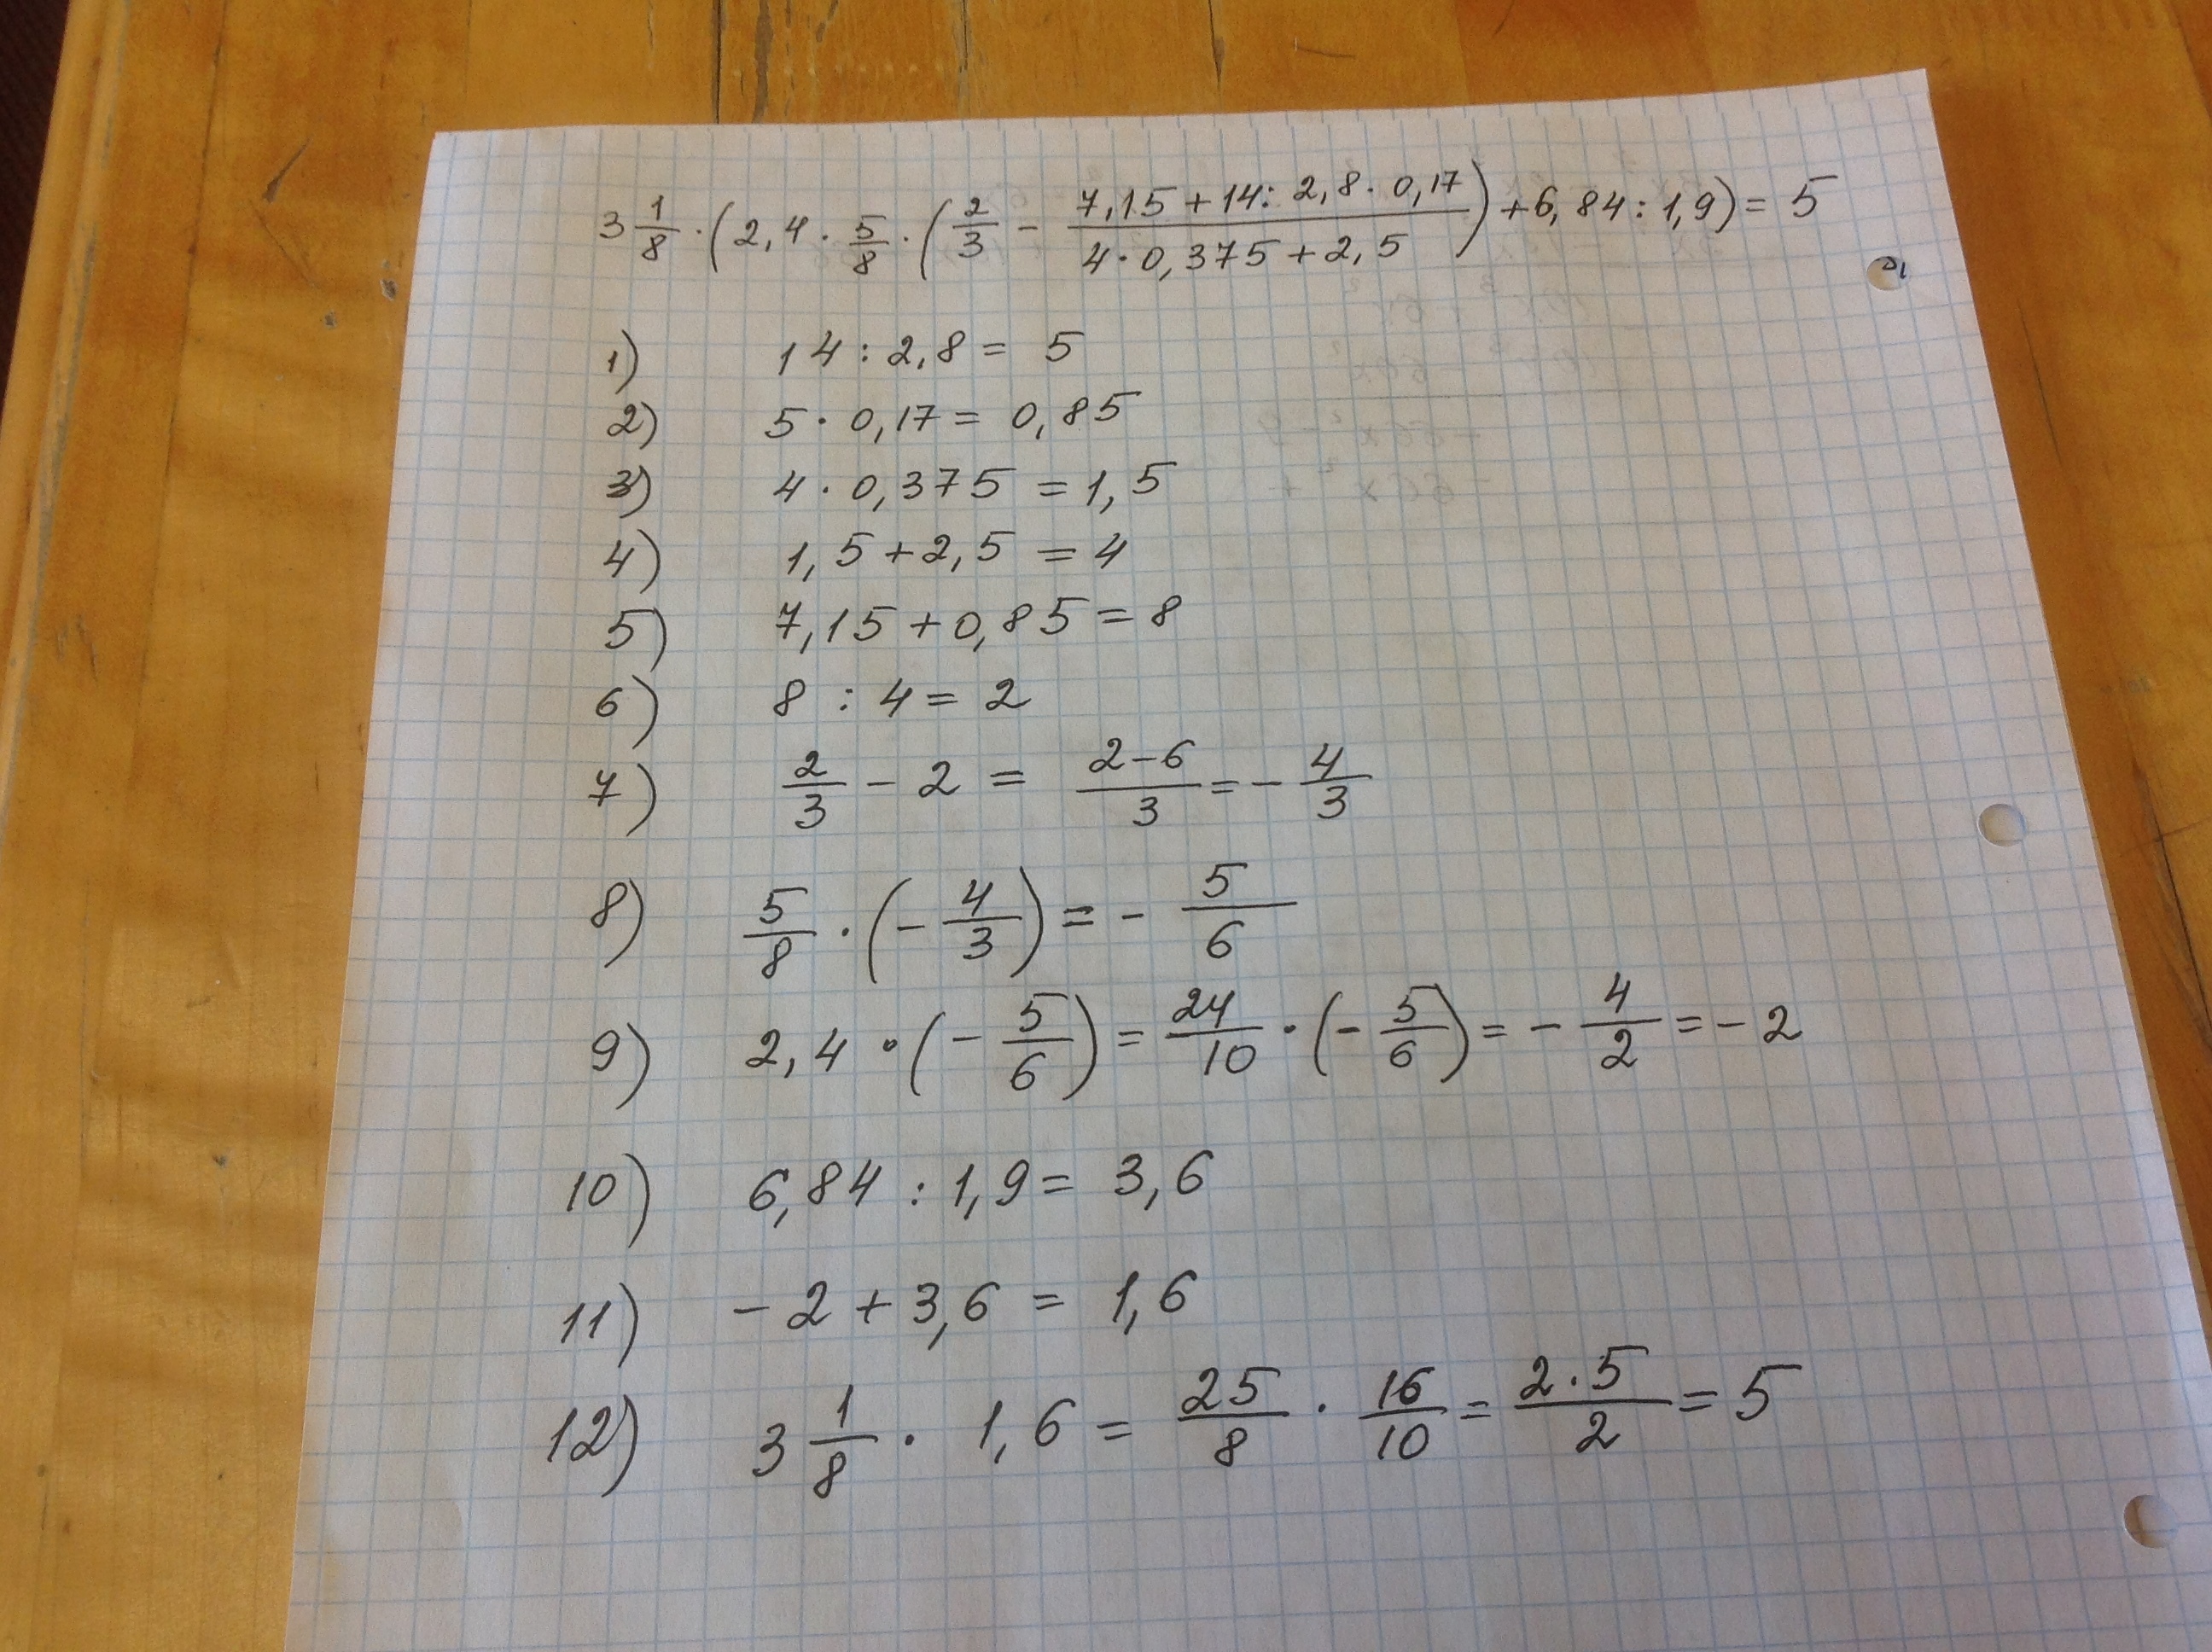 3 1/8 · (2,4 · 5/8 · (2/3 - (7,15 + 14 : 2,8 · 0,17)/(4 · 0,375 + 2,5)) + 6,84 : 1,9) = 5
1) 14 : 2,8 = 5
2) 5 · 0,17 = 0,85
3) 4 · 0,375 = 1,5
4) 1,5 + 2,5 = 4
5) 7,15 + 0,85 = 8
6) 8 : 4 = 2
7) 2/3 - 2 = (2-6)/3 = - 4/3
8) 5/8 · (- 4/3) = - 5/6
9) 2,4 · (- 5/6) = 24/10 · (- 5/6) = - 4/2 = - 2
10) 6,84 : 1,9 = 3,6
11) - 2 + 3,6 = 1,6
12) 3 1/8 · 1,6 = 25/8 · 16/10 = (2 · 5)/2 = 5